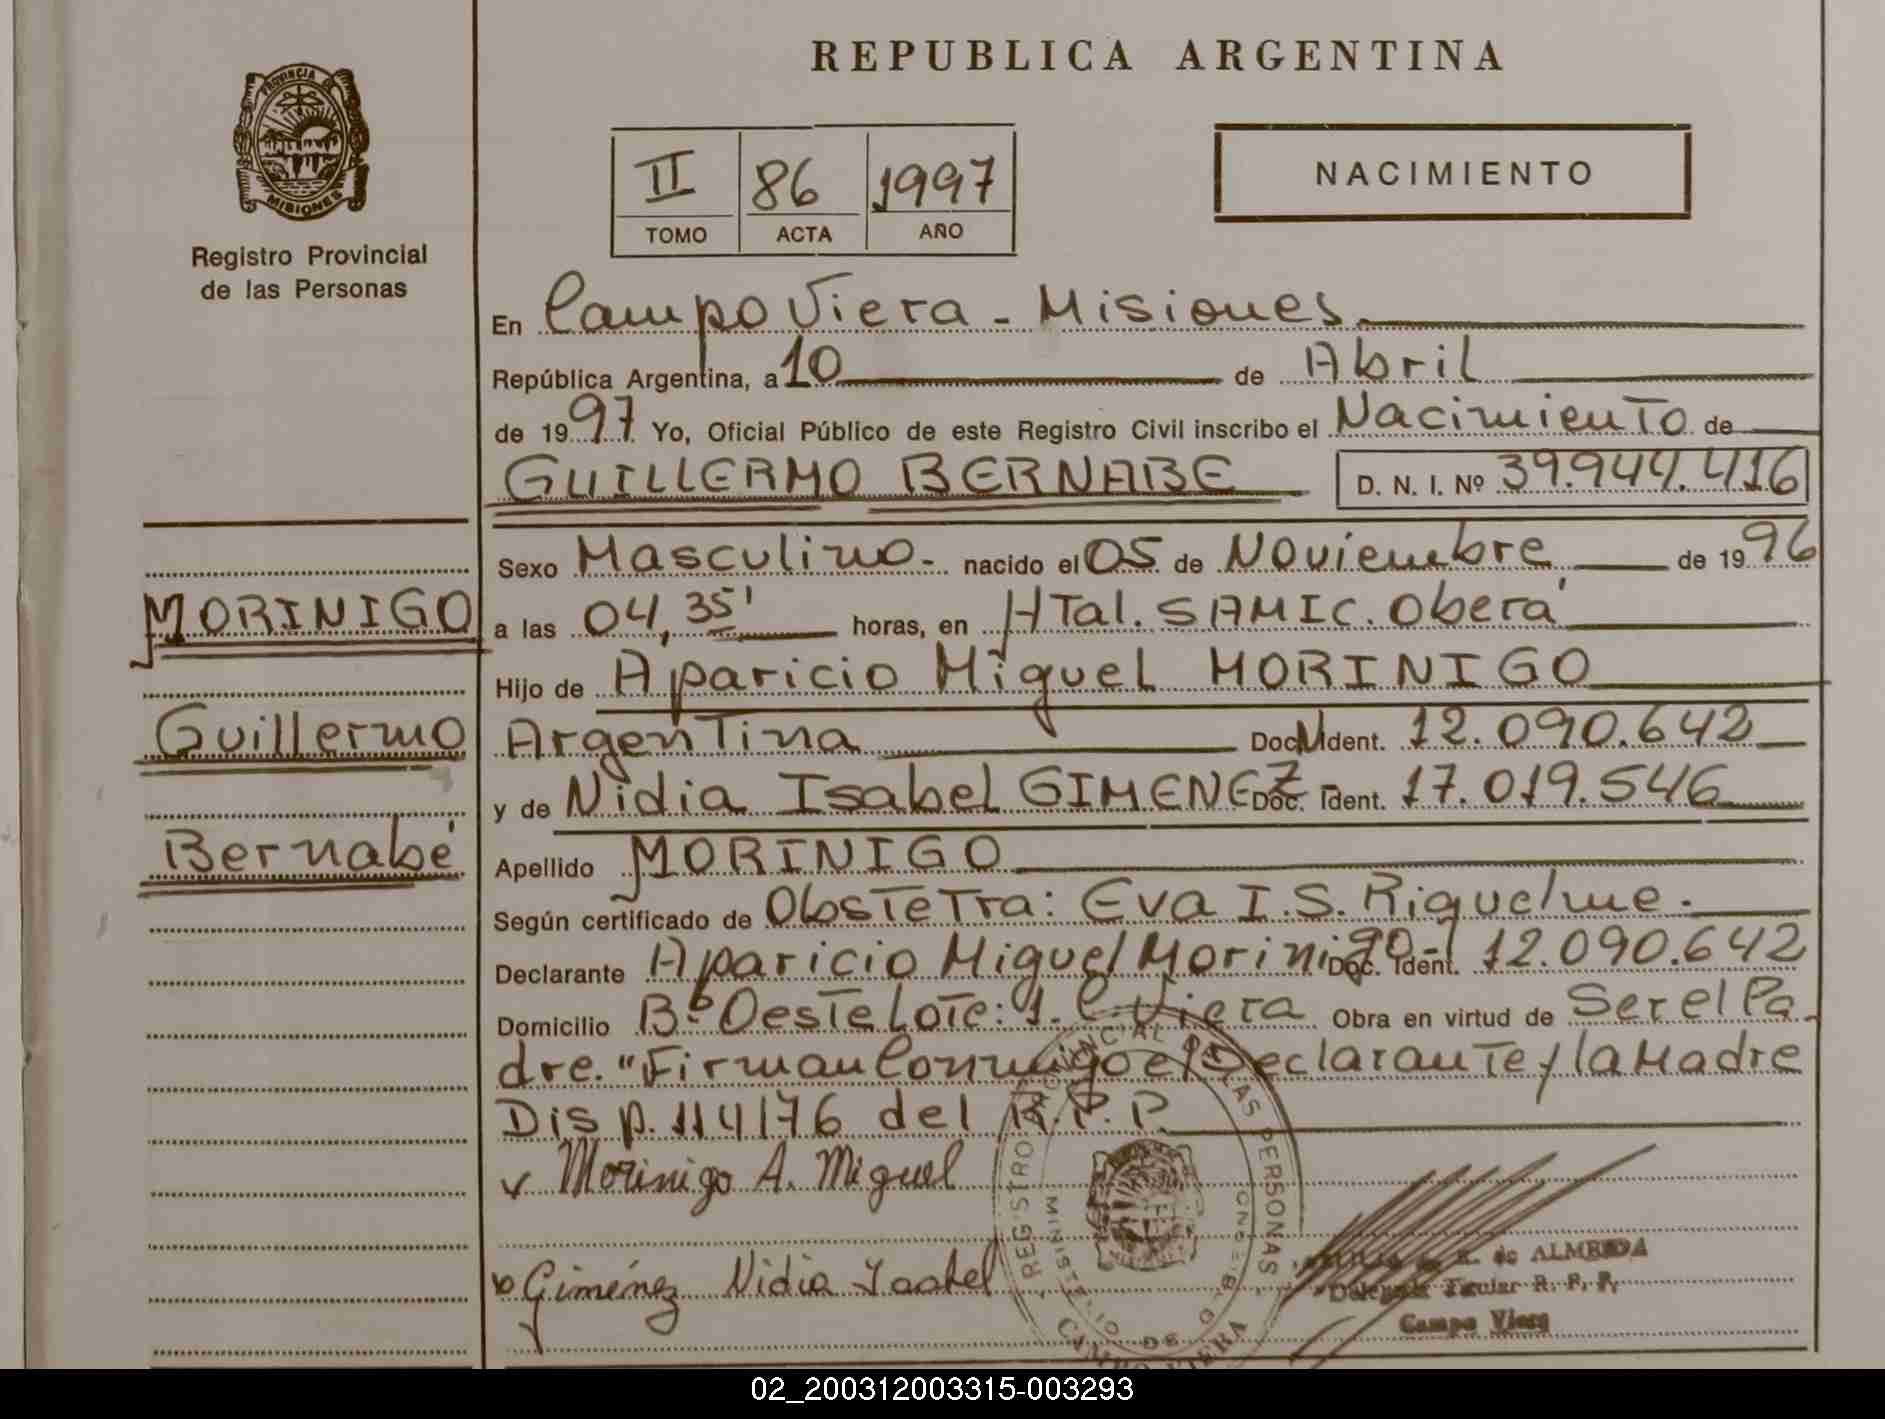 REPUBLICA ARGENTINA
PROVINCIA DE
MISIONES
Registro Provincial
de las Personas
II 86 1997
TOMO ACTA AÑO
NACIMIENTO
En Campo Viera - Misiones
República Argentina, a 10 de Abril
de 1997 Yo, Oficial Público de este Registro Civil inscribo el Nacimiento de
GUILLERMO BERNABE D. N. I. Nº 39.944.416
MORINIGO
Guillermo
Bernabé
Sexo Masculino - nacido el 05 de Noviembre de 1996
a las 04,35' horas, en HTal. SAMIC. Oberá
Hijo de Aparicio Miguel MORINIGO
Argentina Doc. Ident. 12.090.642
y de Nidia Isabel GIMENEZ - Doc. Ident. 17.019.546
Apellido MORINIGO
Según certificado de Obstetra: Eva I.S. Riquelme.
Declarante Aparicio Miguel Morinigo - Doc. Ident. 12.090.642
Domicilio Bº Oeste Lote: 1. C. Viera Obra en virtud de Ser el Pa
dre. "Firman Conmigo el Declarante y la Madre
Disp. 114/76 del R.P.P.
Morinigo A. Miguel
Giménez Nidia Isabel
REGISTRO PROVINCIAL DE LAS PERSONAS
MINISTERIO DE GOBIERNO
CAMPO VIERA
de ALMEIDA
Delegada Titular R. P. P.
Campo Viera
02_200312003315-003293